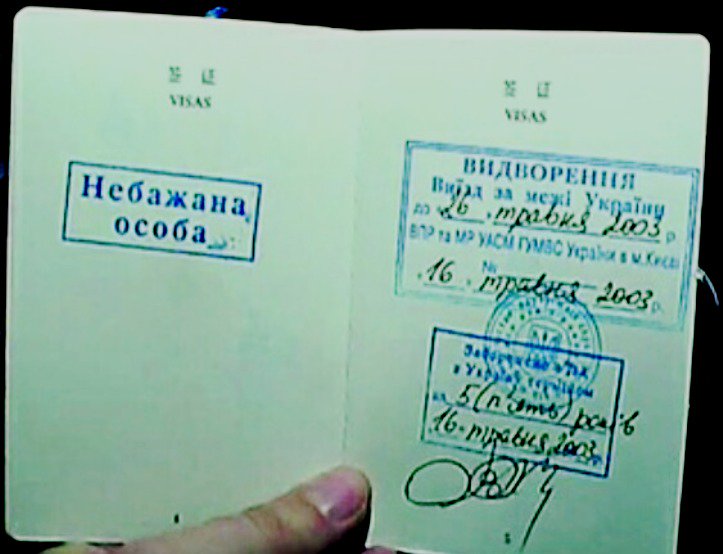 簽 証
VISAS
Небажана
особа
簽 証
VISAS
ВИДВОРЕННЯ
Виїзд за межі України
до 26 . травня 2003 р.
ВПР та МР УАСМ ГУМВС України в м.Києві
№
16 . травня 2003 р.
Заборонено в'їзд
в Україну терміном
на 5 (п'ять) років
16. травня 2003 р.